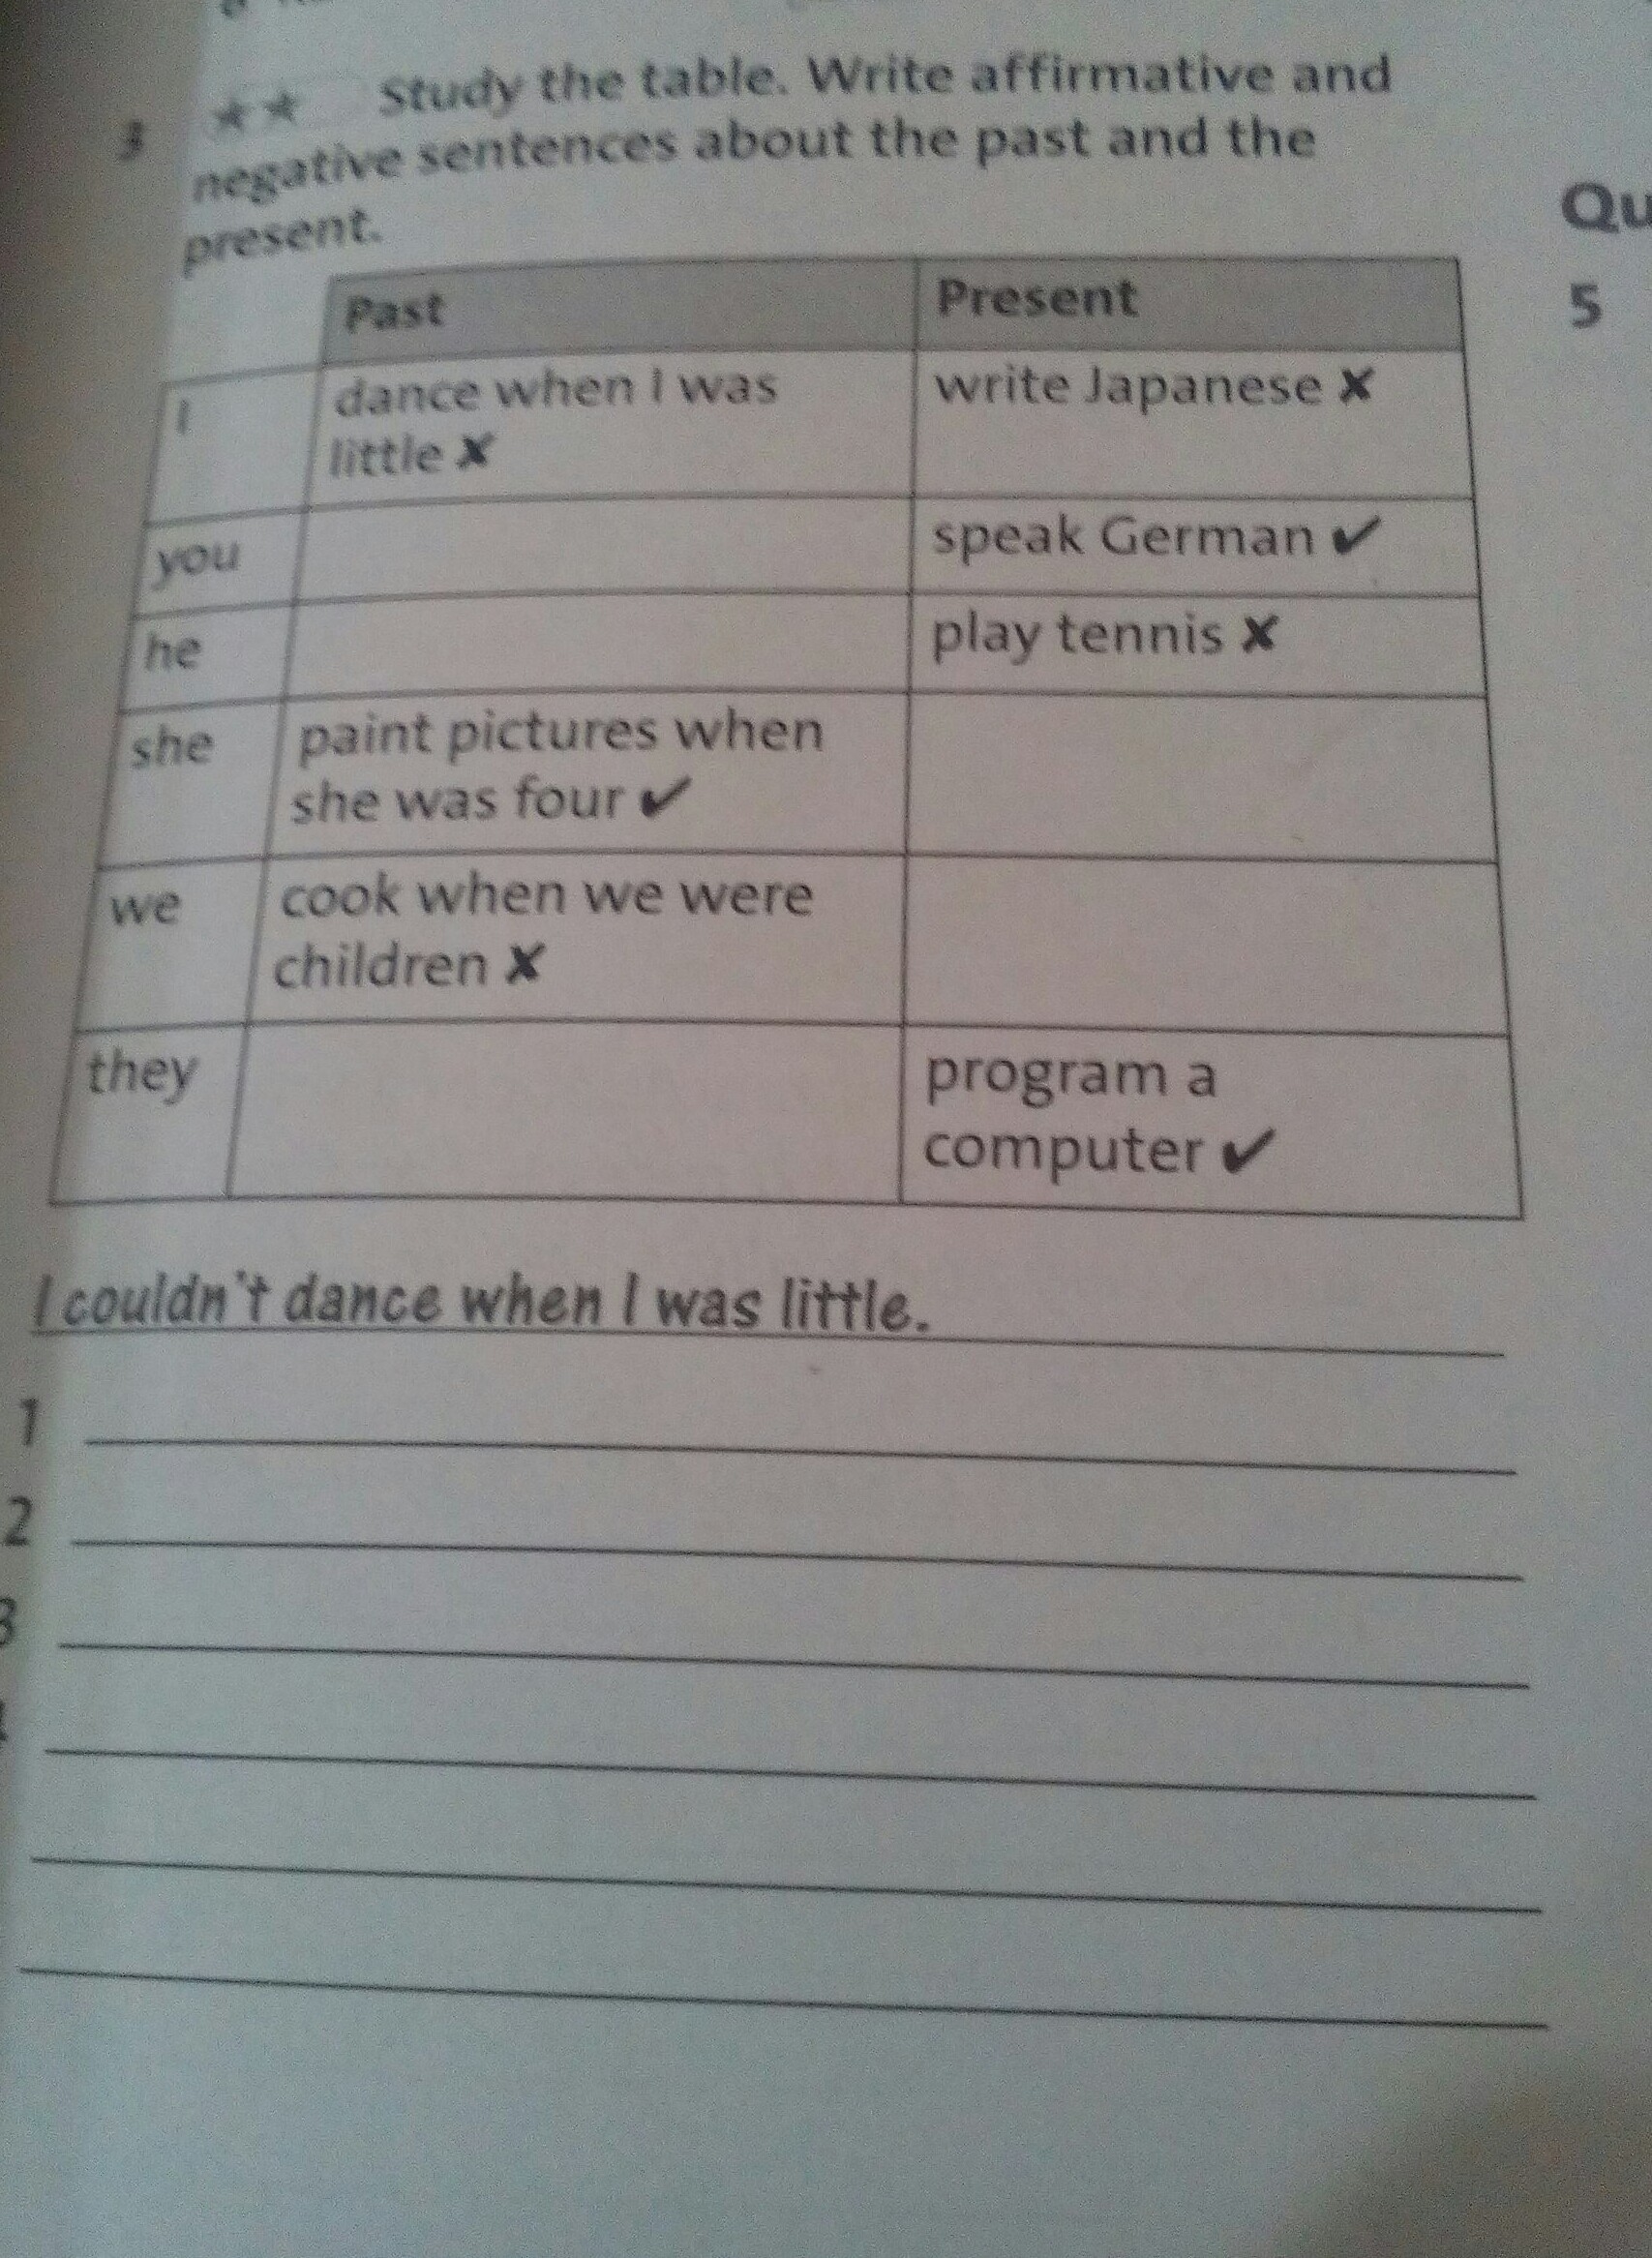 3 ★★ Study the table. Write affirmative and
negative sentences about the past and the
present.
Past Present
I dance when I was write Japanese ✘
little ✘
you speak German ✔
he play tennis ✘
she paint pictures when
she was four ✔
we cook when we were
children ✘
they program a
computer ✔
I couldn't dance when I was little.
1
2
3
Qu
5